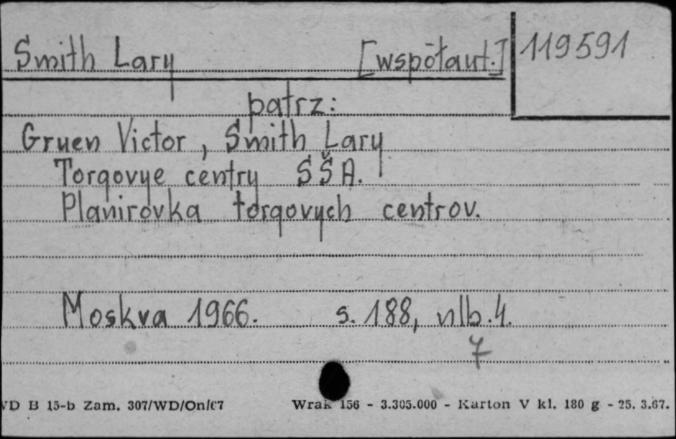 Smith Lary [współaut.] 119591
patrz:
Gruen Victor, Smith Lary
Torgovye centry SŠA.
Planirovka torgovych centrov.
Moskva 1966. s. 188, nlb. 4.
7
VD B 15-b Zam. 307/WD/On/67 Wrak 156 - 3.305.000 - Karton V kl. 180 g - 25. 3.67.